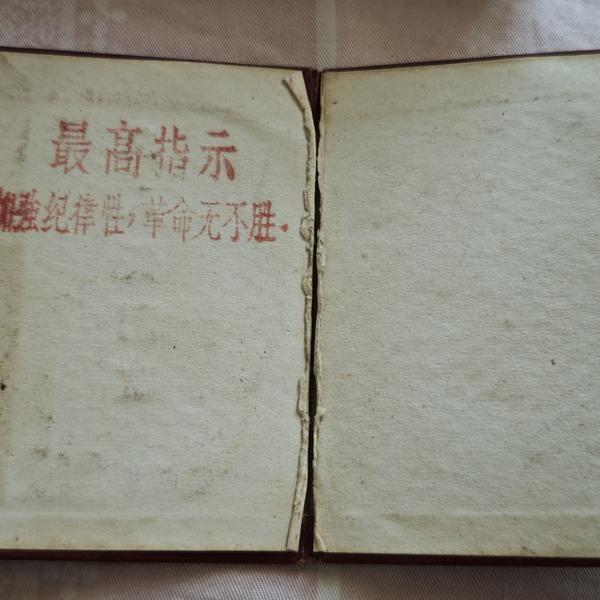 最高指示
加强纪律性，革命无不胜.